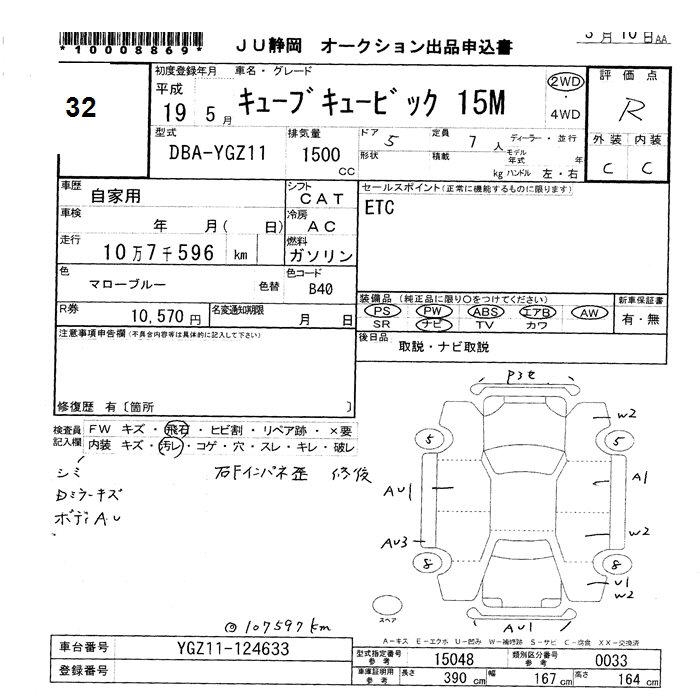 *10008869* JU静岡 オークション出品申込書 10日AA
32
初度登録年月 車名・グレード 2WD・4WD 評価点
平成 19 5月 キューブキュービック 15M R
型式 排気量 ドア 5 定員 7人 ディーラー・並行 外装 内装
DBA-YGZ11 1500cc 形状 積載 kg モデル年式 年 ハンドル 左・右 C C
車歴 自家用 シフト CAT セールスポイント(正常に機能するものに限ります)
車検 年 月( 日) 冷房 AC ETC
走行 10万7千596 km 燃料 ガソリン
色 マローブルー 色替 色コード B40
装備品 (純正品に限り○をつけてください) 新車保証書
R券 10,570円 名変通知期限 月 日 PS PW ABS エアB AW 有・無
SR ナビ TV カワ
注意事項申告欄(不具合内容等は具体的に記入して下さい) 後日品 取説・ナビ取説
修復歴 有〔箇所 〕
検査員記入欄 FW キズ・飛石・ヒビ割・リペア跡・×要
内装 キズ・汚レ・コゲ・穴・スレ・キレ・破レ
シミ 右Fインパネ歪 修復
Dミラーキズ
ボディAU
P3セ
W2
5 5
AU1 A1
AU3 W2
8 8
U1
W2
スペア
AU1
◎107597km
A-キズ E-エクボ U-凹み W-補修跡 S-サビ C-腐食 XX-交換済
車台番号 YGZ11-124633 型式指定番号 参考 15048 類別区分番号 参考 0033
登録番号 車庫証明用 参考 長さ 390 cm 幅 167 cm 高さ 164 cm